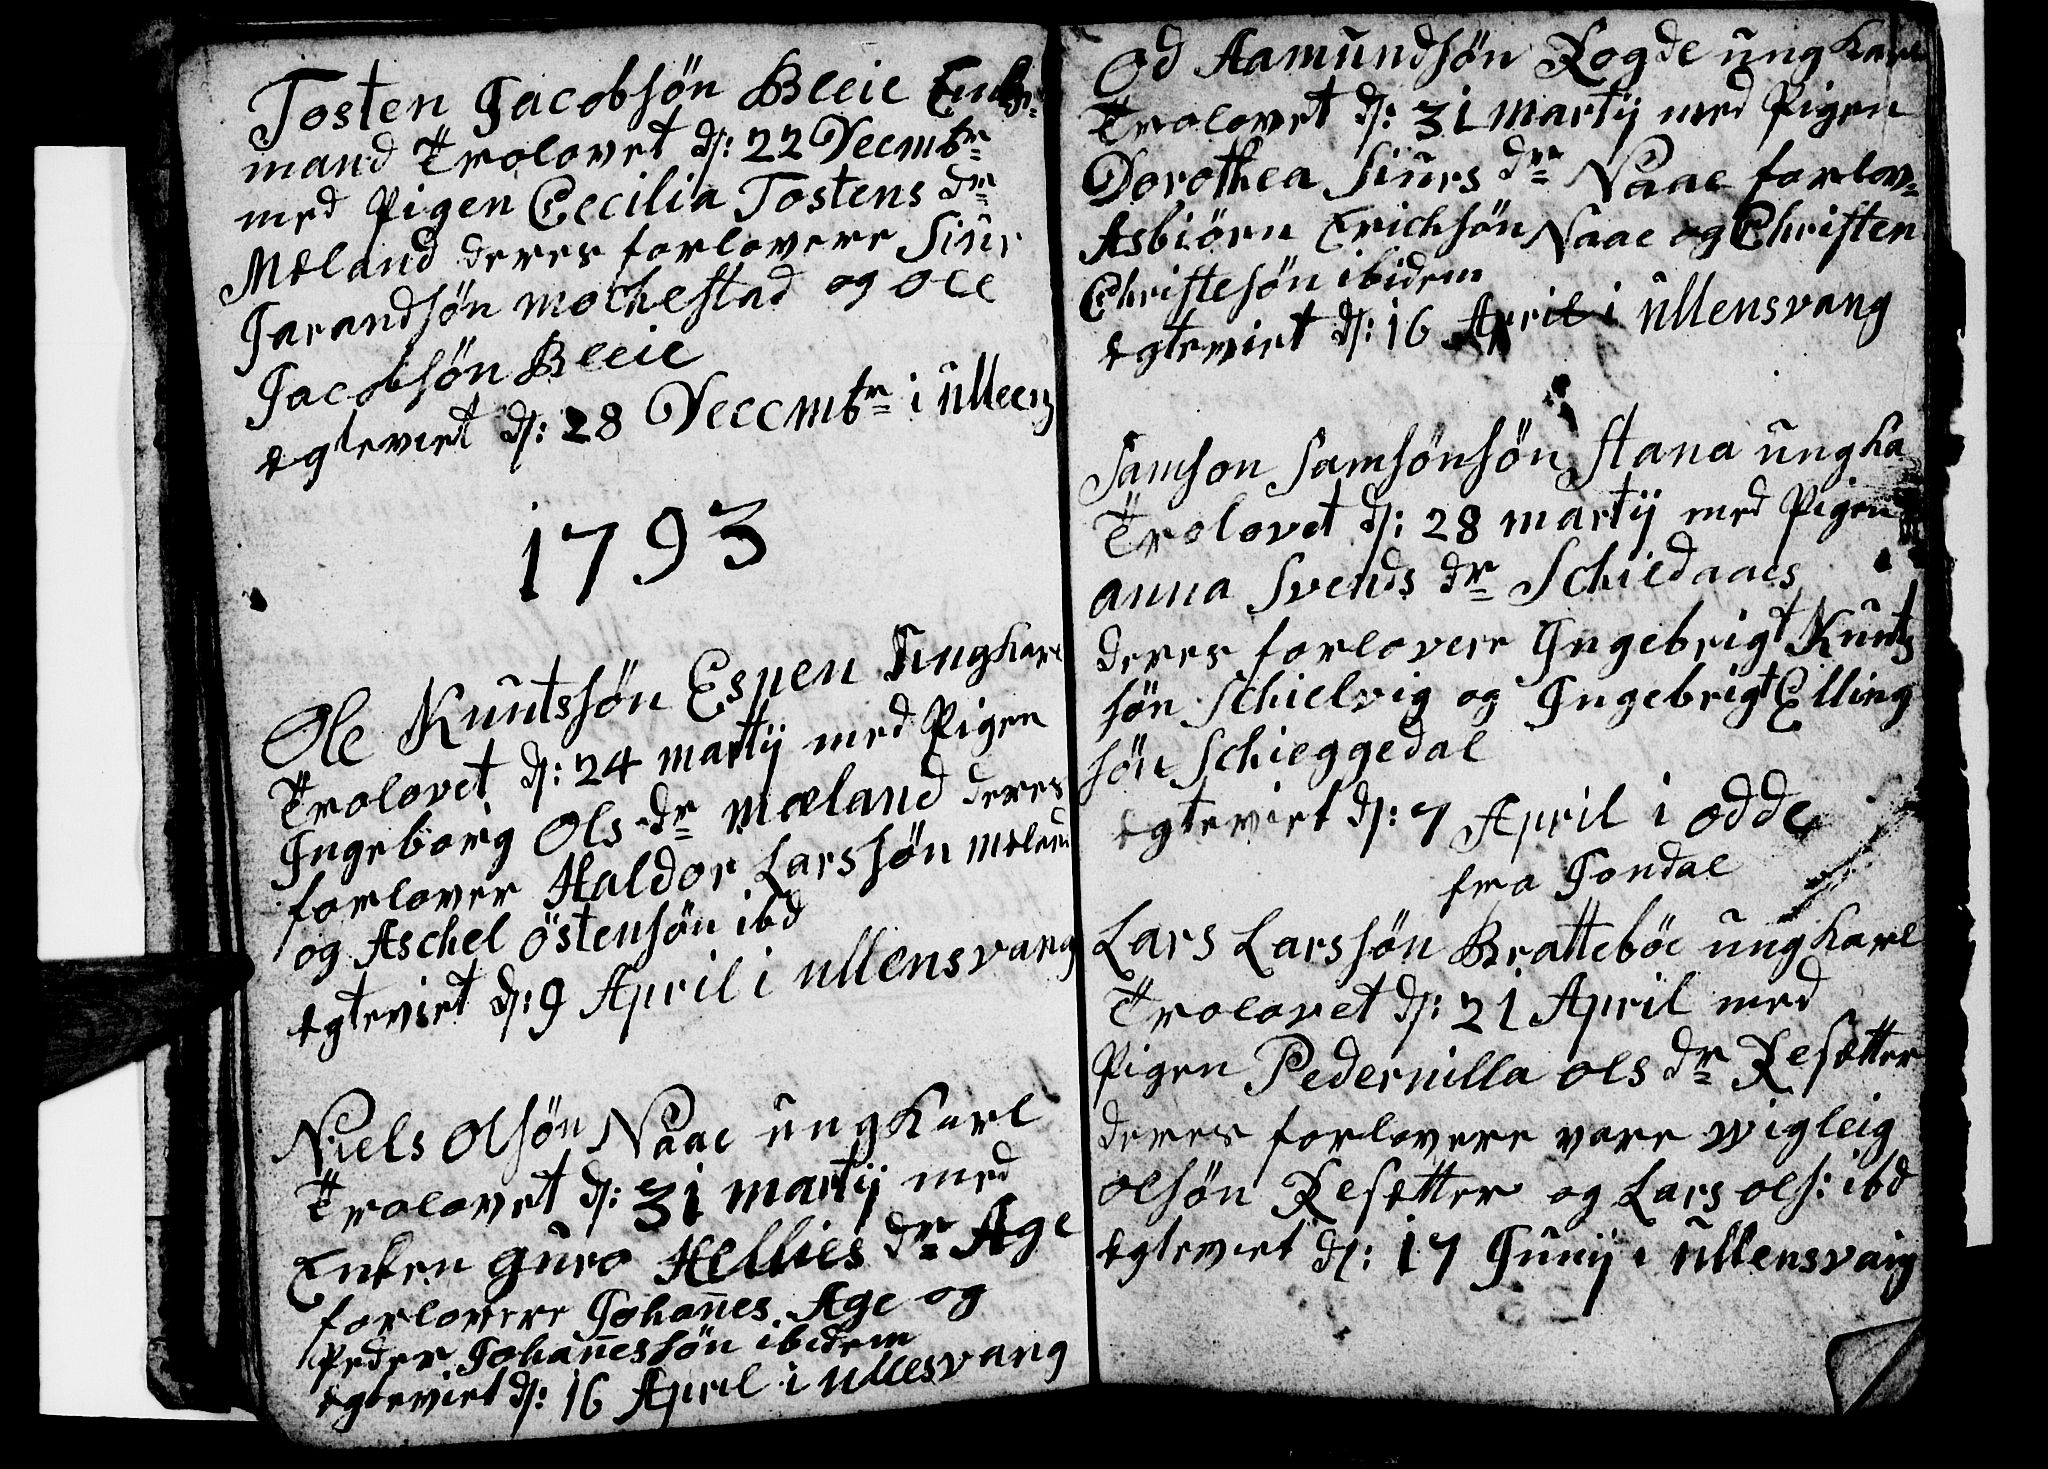 Tosten Jacobsön Bleie Enke-
mand Trolovet d: 22 Decmbr
med Pigen Cecilia Tostens dr
Mæland deres forlovere Siur
Jarandsön Mochestad og Ole
Jacobsön Bleie
Egteviet d: 28 Decembr i Ullens
1793
Ole Knutssön Espen Ungkarl
Trolovet d: 24 Martij med Pigen
Ingeborg Ols dr Mæland deres
forlover Haldor Larssön Mæland
og Aschel Östensön ibd
Egteviet d: 9 April i Ullensvang
Niels Olsön Naae ungkarl
Trolovet d: 31 Martij med
Enken Guro Hellies dr Age
forlovere Johannes Age og
Peder Johannessön ibidem
Egteviet d: 16 April i Ullesvang
Od Aamundsön Rogde ungkarl
Trolovet d: 31 Martij med Pigen
Dorothea Siurs dr Naae forlov=
Asbiörn Erichsön Naae og Christen
Christesön ibidem
Egteviet d: 16 April i Ullensvang
Samson Samsönsön Stana ungka
Trolovet d: 28 Martij med Pigen
Anna Svends dr Schieldaaes
deres forlovere Ingebrigt Knuts
sön Schielvig og Ingebrigt Elling
sön Schieggedal
Egteviet d: 7 April i Odde
fra Jondal
Lars Larssön Brattebøe ungkarl
Trolovet d: 21 April med
Pigen Pedernilla Ols dr Resætter
deres forlovere vare Wigleig
Olsön Resætter og Lars Ols: ibd
Egteviet d: 17 Junij i Ullensvang